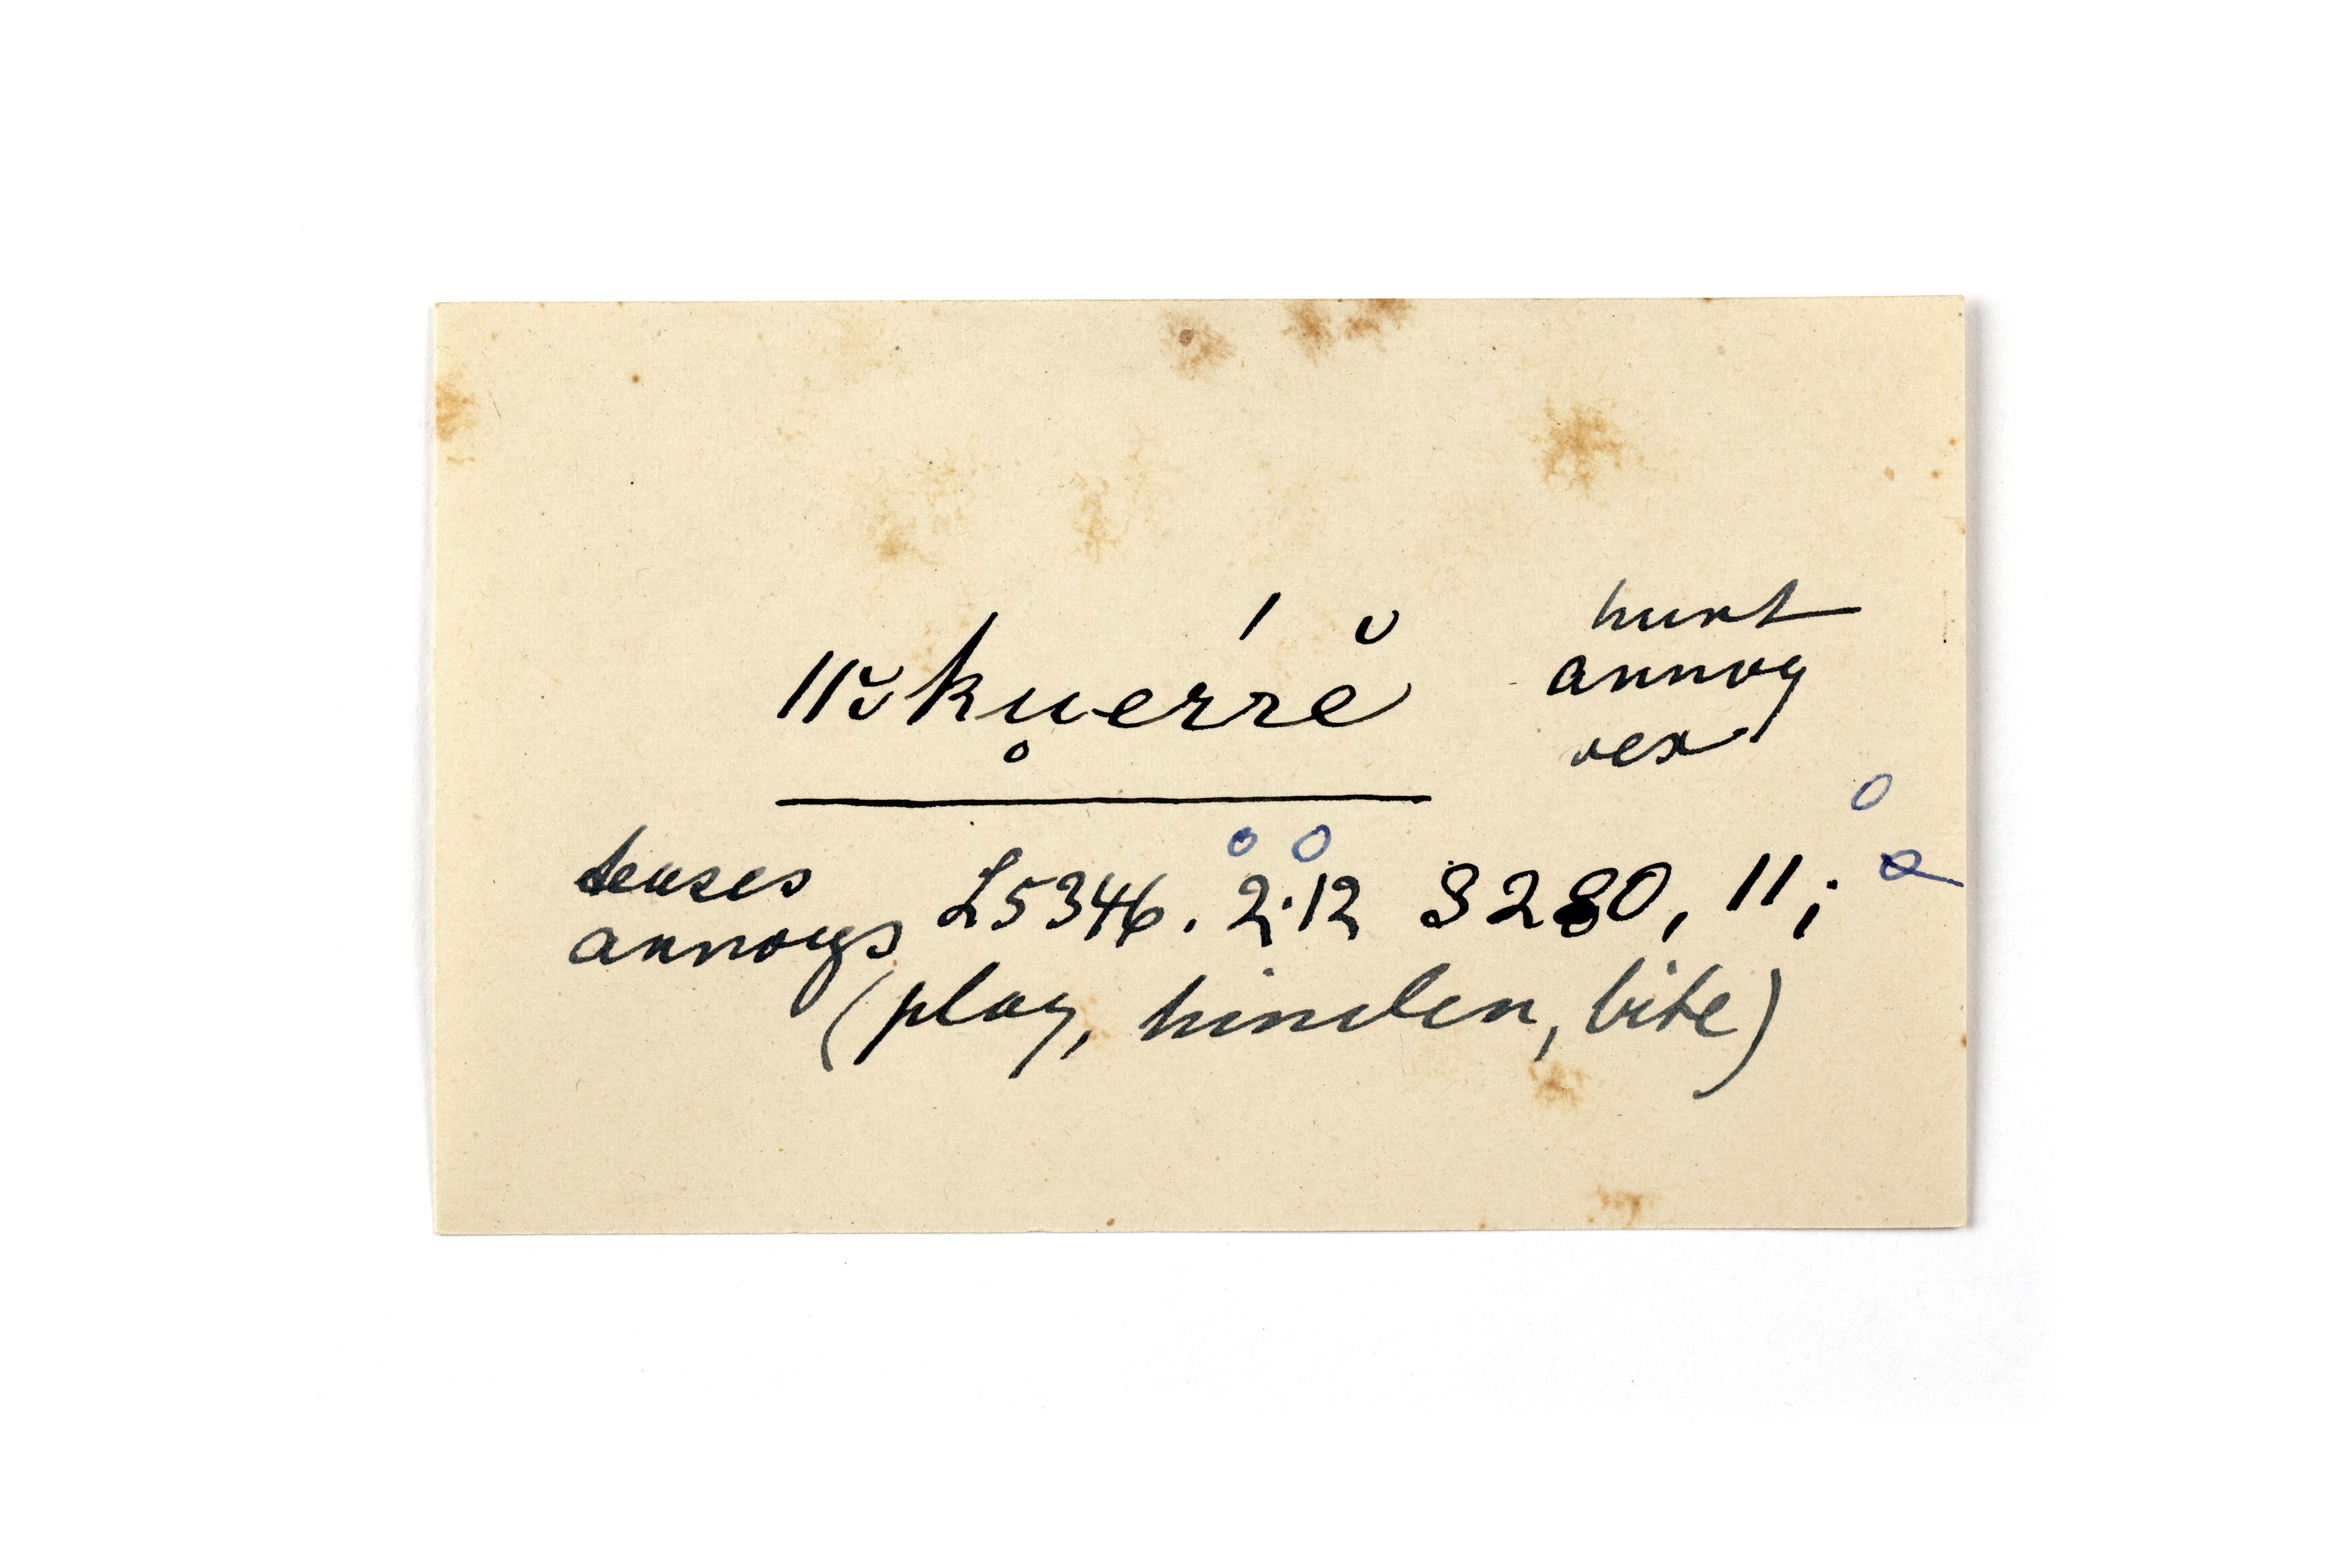 ǁʊ̆ku̥érrĕ
hurt
annoy
vex
teases
annoys
L5346. 2·12 3280, 11;
(play, hinder, bite)